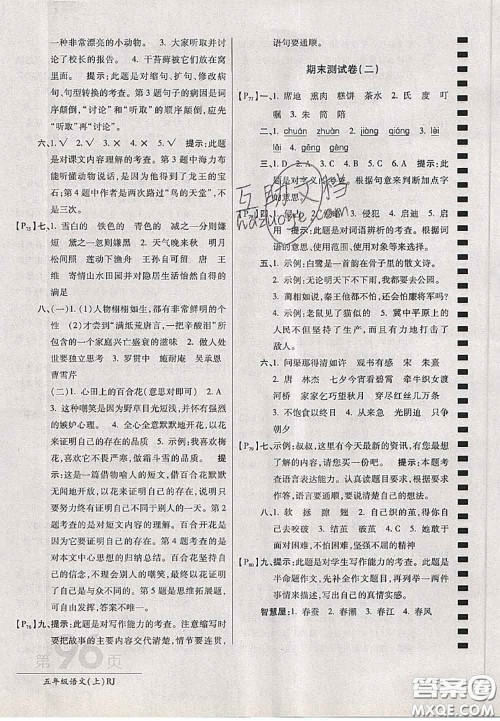 一种非常漂亮的小动物。 3. 大家听取并讨
论了小东的学习经验。 4. 干苔藓就使它成
了托盘。 提示:此题是对缩句、扩句、修改病
句、句型转换的考查。第3题句子的病因是词
序颠倒,“讨论”和“听取”的顺序颠倒,应
“听取”再“讨论”。
六、1. ✓ 2. ✓ 3. × 4. × 提示:此题是
对课文内容理解的考查。第3题中海力布
能听懂动物说的话是因为得到了龙王的宝
石;第4题中作者是两次路过“鸟的天堂”,不
是三次。
[P75]七、1. 雪白的 铁色的 青色的 减之一分则嫌
短 黛之一忽则嫌黑 2. 天气晚来秋 明月
松间照 浣女 渔舟 随意春芳歇 王孙自可
留 3. 游山西村 临安邸 王孙可留 4. 王
维 寄情山水田园并对隐居生活怡然自得的
满足
八、(一)1. (1)人物栩栩如生,都有非常鲜明的个
性 (2)才尝到“满纸荒唐言,一把辛酸泪”所
包含的一个家庭兴亡盛衰的滋味 2. 读书就
要独立思考 3. 罗贯中 施耐庵 吴承恩
曹雪芹
(二)1. 心田上的百合花(意思对即可) 2.
3. 这种嘲笑是因为野草目光短浅,也有强烈
的嫉妒心理。 4. 百合花谨记着它的使命,要
以花来证明自己的存在。 5. 示例:我喜欢梅
花,喜欢它不畏严寒,傲霜斗雪的品质。 提
示:这是一篇借物喻人的短文,百合花默默
无闻地开放,以花来证明自己的存在。第2题
考查的是对短文内容的理解。第4题是对
本文中心思想的归纳总结。百合花开是为
了完成作为一株花的庄严使命,用花证明了
自己是与众不同的。第5题是思维拓展题,可
联系自己来谈。
[P76]九、提示:此题是对写作能力的考查。习作要
把故事的主要内容交代清楚,情节要连贯,
语句要通顺。
期末测试卷(二)
[P77]一、1. 席地 熏肉 糕饼 茶水 2. 氏 度 叮
嘱 3. 朱 筒 陪
二、1. chuán zhuàn 2. jiāng jiàng 3. lài
lěi 4. gěng gēng
三、1. D 2. C 3. A 4. B 5. C 6. A 提示:此
题是对字义的考查。根据句意判断加点字
的意思。
[P78]四、 3. 侵犯 4. 启迪 5. 启
示 提示:此题是对词语辨析的考查。根据词
语的意思、使用范围、使用对象来判断。
五、1. 示例:白鹭是一首韵在骨子里的散文诗。
2. 示例:无论明天下不下雨,我们都去公园。
3. 蔺相如说,秦王他都不怕,还会怕廉将军吗?
4. 示例:老鼠见了猫似的 5. 冀中平原上的
人民不但坚持了生产,而且有力地打击了
敌人。
六、1. 问渠那得清如许 观书有感 宋 朱熹
2. 唐 林杰 七夕今宵看碧霄 牵牛织女渡
河桥 家家乞巧望秋月 穿尽红丝几万条
3. 一日不读书 4. 从来 光阴迫 只争
朝夕
[P79]七、示例:叔叔,这里有今天最新的资讯,有您最想
了解的内容,买一份看看吧。 提示:本题考
查语言表达能力。认真读题目要求,根据事
件、人物身份来表达自己的想法,语言要得
体。
八、1. 软 拯 蹭 翘 2. 因为她以前织的茧,
自己去咬破 3. 结茧 破茧 4. C 5. 她敢于
面对自己的命运,并主动掌握自己的命运。
[P80]九、提示:此题是对学生写作能力的考查。此题是
半命题作文,先补全题目,再进行作文。语句
要通顺,情感要真实。
智慧屋:1. 春蚕 2. 春潮 3. 春江 4. 春风
第96页
五年级语文(上)RJ
互助文档
答案圈
MXQE.COM